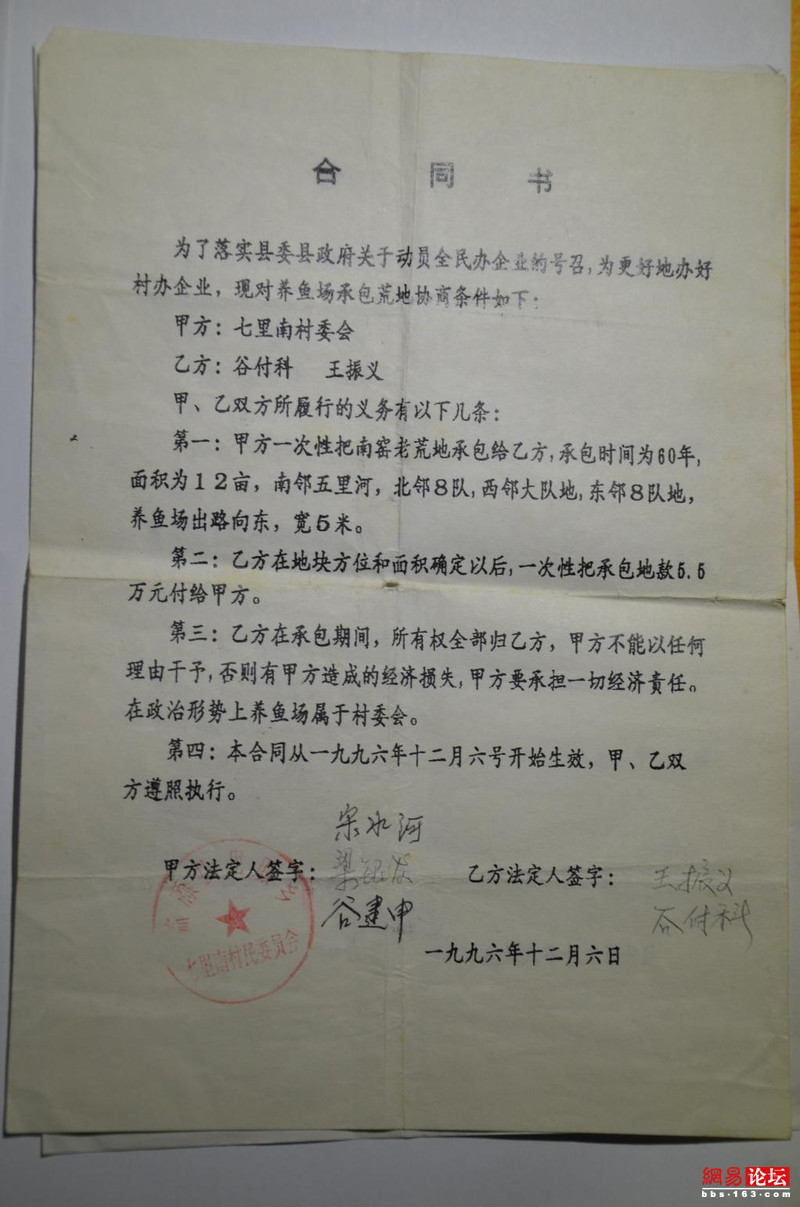 合同书
为了落实县委县政府关于动员全民办企业的号召,为更好地办好
村办企业，现对养鱼场承包荒地协商条件如下：
甲方：七里南村委会
乙方：谷付科 王振义
甲、乙双方所履行的义务有以下几条：
第一：甲方一次性把南窑老荒地承包给乙方,承包时间为60年,
面积为12亩，南邻五里河，北邻8队,西邻大队地,东邻8队地，
养鱼场出路向东，宽5米。
第二：乙方在地块方位和面积确定以后,一次性把承包地款5.5
万元付给甲方。
第三：乙方在承包期间，所有权全部归乙方，甲方不能以任何
理由干予,否则有甲方造成的经济损失,甲方要承担一切经济责任。
在政治形势上养鱼场属于村委会。
第四：本合同从一九九六年十二月六号开始生效，甲、乙双
方遵照执行。
宋水河
甲方法定人签字： 乙方法定人签字： 王振义
谷建申 谷付科
七里南村民委员会
一九九六年十二月六日
網易论坛
bbs·163.com